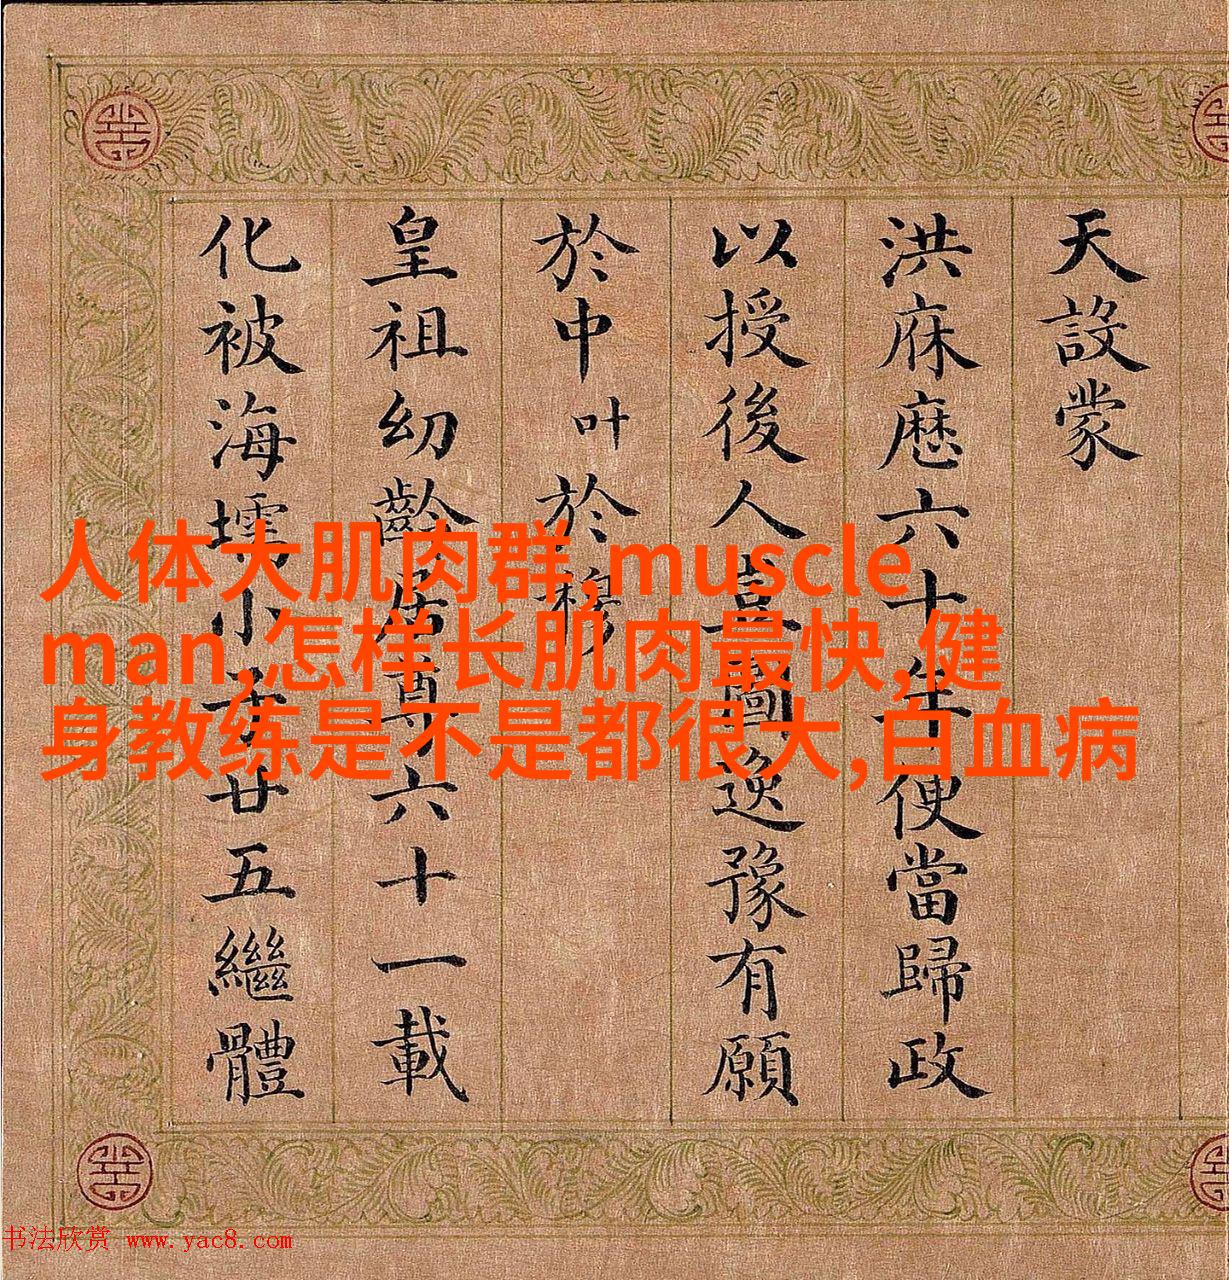 天設蒙
洪庥歷六十年便當歸政
以授後人豈圖逸豫有願
於中叶於穆
皇祖幼齡居尊六十一載
化被海壖小子廿五繼體
人体大肌肉群,muscle
man,怎样长肌肉最快,健
身教练是不是都很大,白血病
书法欣赏 www.yac8.com